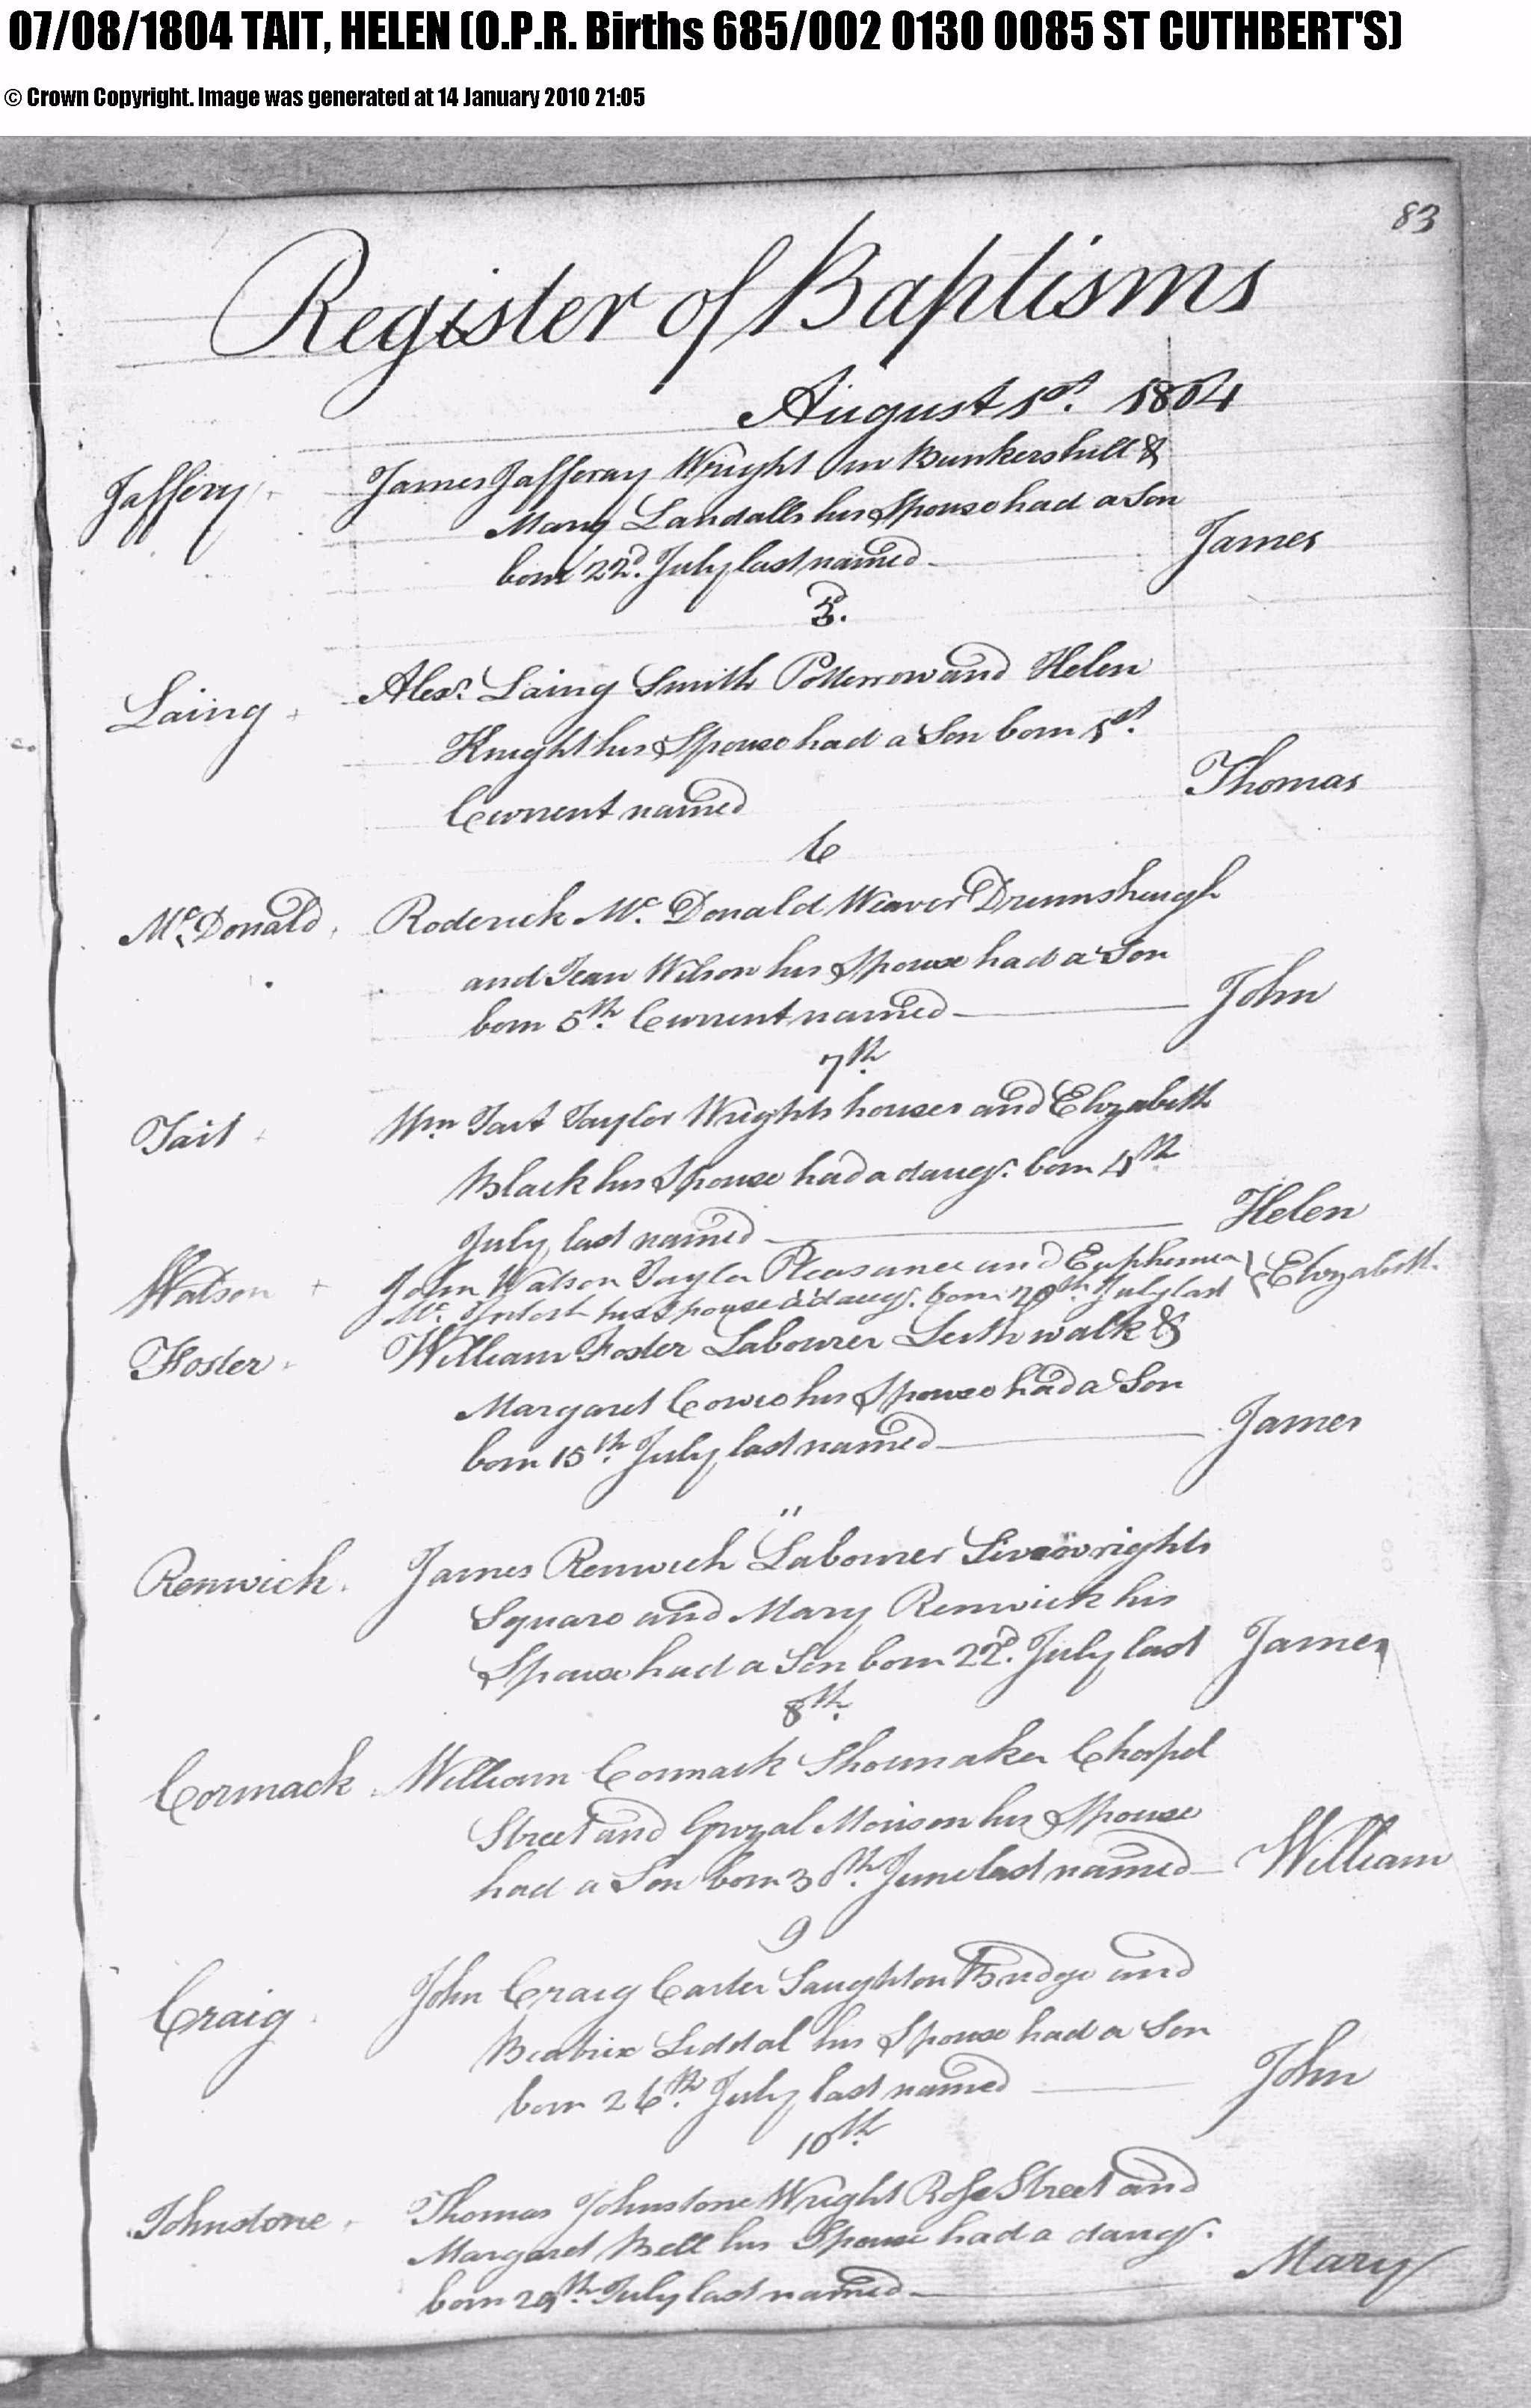 07/08/1804 TAIT, HELEN (O.P.R. Births 685/002 0130 0085 ST CUTHBERT'S)
© Crown Copyright. Image was generated at 14 January 2010 21:05
83
Register of Baptisms
August 1st. 1804
Jaffery James Jafferay Wright in Bunkershill &
Mary Landalls his Spouse had a Son
born 22d. July last named James
3d.
Laing Alexr. Laing Smith Potterrow and Helen
Knight his Spouse had a Son born 1st.
Current named Thomas
6
Mc. Donald Roderick Mc. Donald Weaver Drumsheugh
and Jean Wilson his Spouse had a Son
born 5th. Current named John
7th.
Tait Wm Tait Taylor Wrights houses and Elizabeth
Black his Spouse had a daugr. born 4th
July last named Helen
Watson John Watson Taylor Pleasance and Euphemia
Mc. Intosh his Spouse a daugr. born 20th July last Elizabeth
Foster William Foster Labourer Leithwalk &
Margaret Cowie his Spouse had a Son
born 15th. July last named James
"
Renwick James Renwick Labourer Sivewrights
Square and Mary Renwick his
Spouse had a Son born 22d. July last James
8th.
Cormack William Cormack Shoemaker Chapel
Street and Grizal Morison his Spouse
had a Son born 30th. June last named William
9
Craig John Craig Carter Saughton Bridge and
Beatrix Liddal his Spouse had a Son
born 26th. July last named John
10th.
Johnstone Thomas Johnstone Wright Rose Street and
Margaret Bell his Spouse had a daugr.
born 29th. July last named Mary